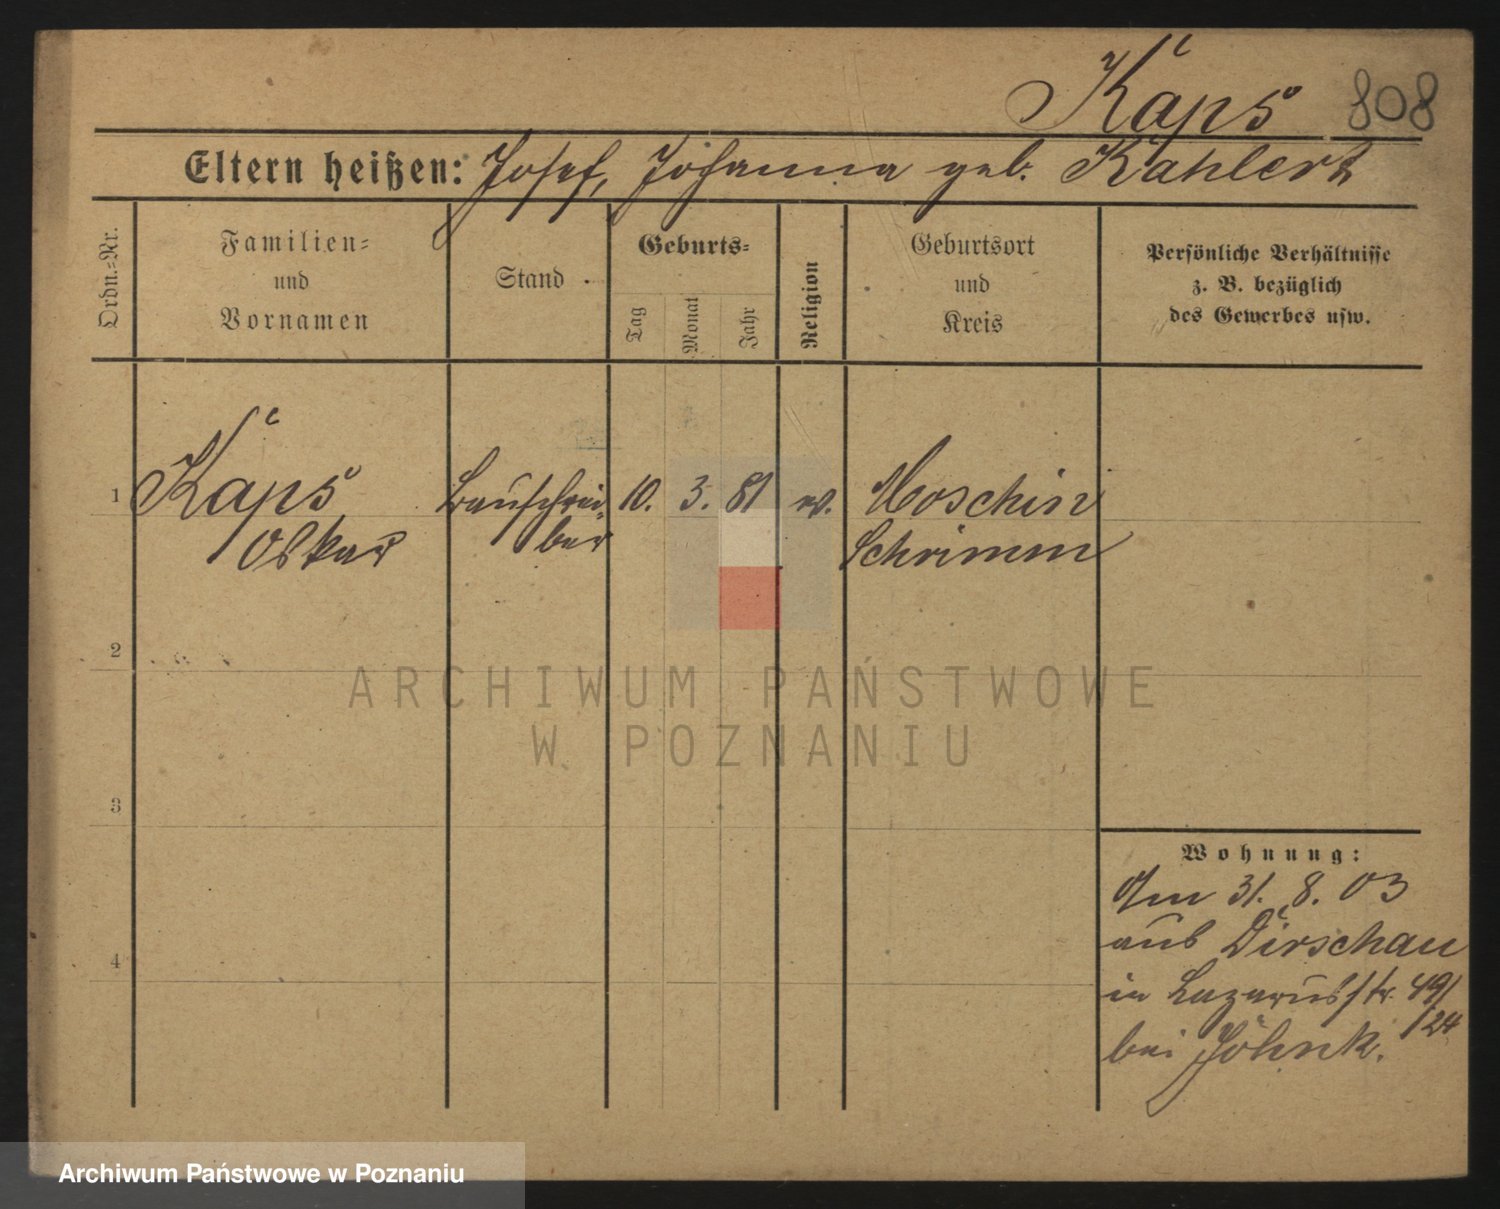 Kaps 808
Eltern heißen: Josef, Johanna geb. Kahlert
Ordn.-Nr.
Familien-
und
Vornamen
Stand
Geburts-
Tag
Monat
Jahr
Religion
Geburtsort
und
Kreis
Persönliche Verhältnisse
z. B. bezüglich
des Gewerbes usw.
1 Kaps Bauschrei- 10. 3. 81 Moschin
Oskar ber Schrimm
2
3
4
Wohnung:
Am 31. 8. 03
aus Dirschau
in Lazarusstr. 49/
/24
bei Jöhnk.
ARCHIWUM PAŃSTWOWE
W POZNANIU
Archiwum Państwowe w Poznaniu